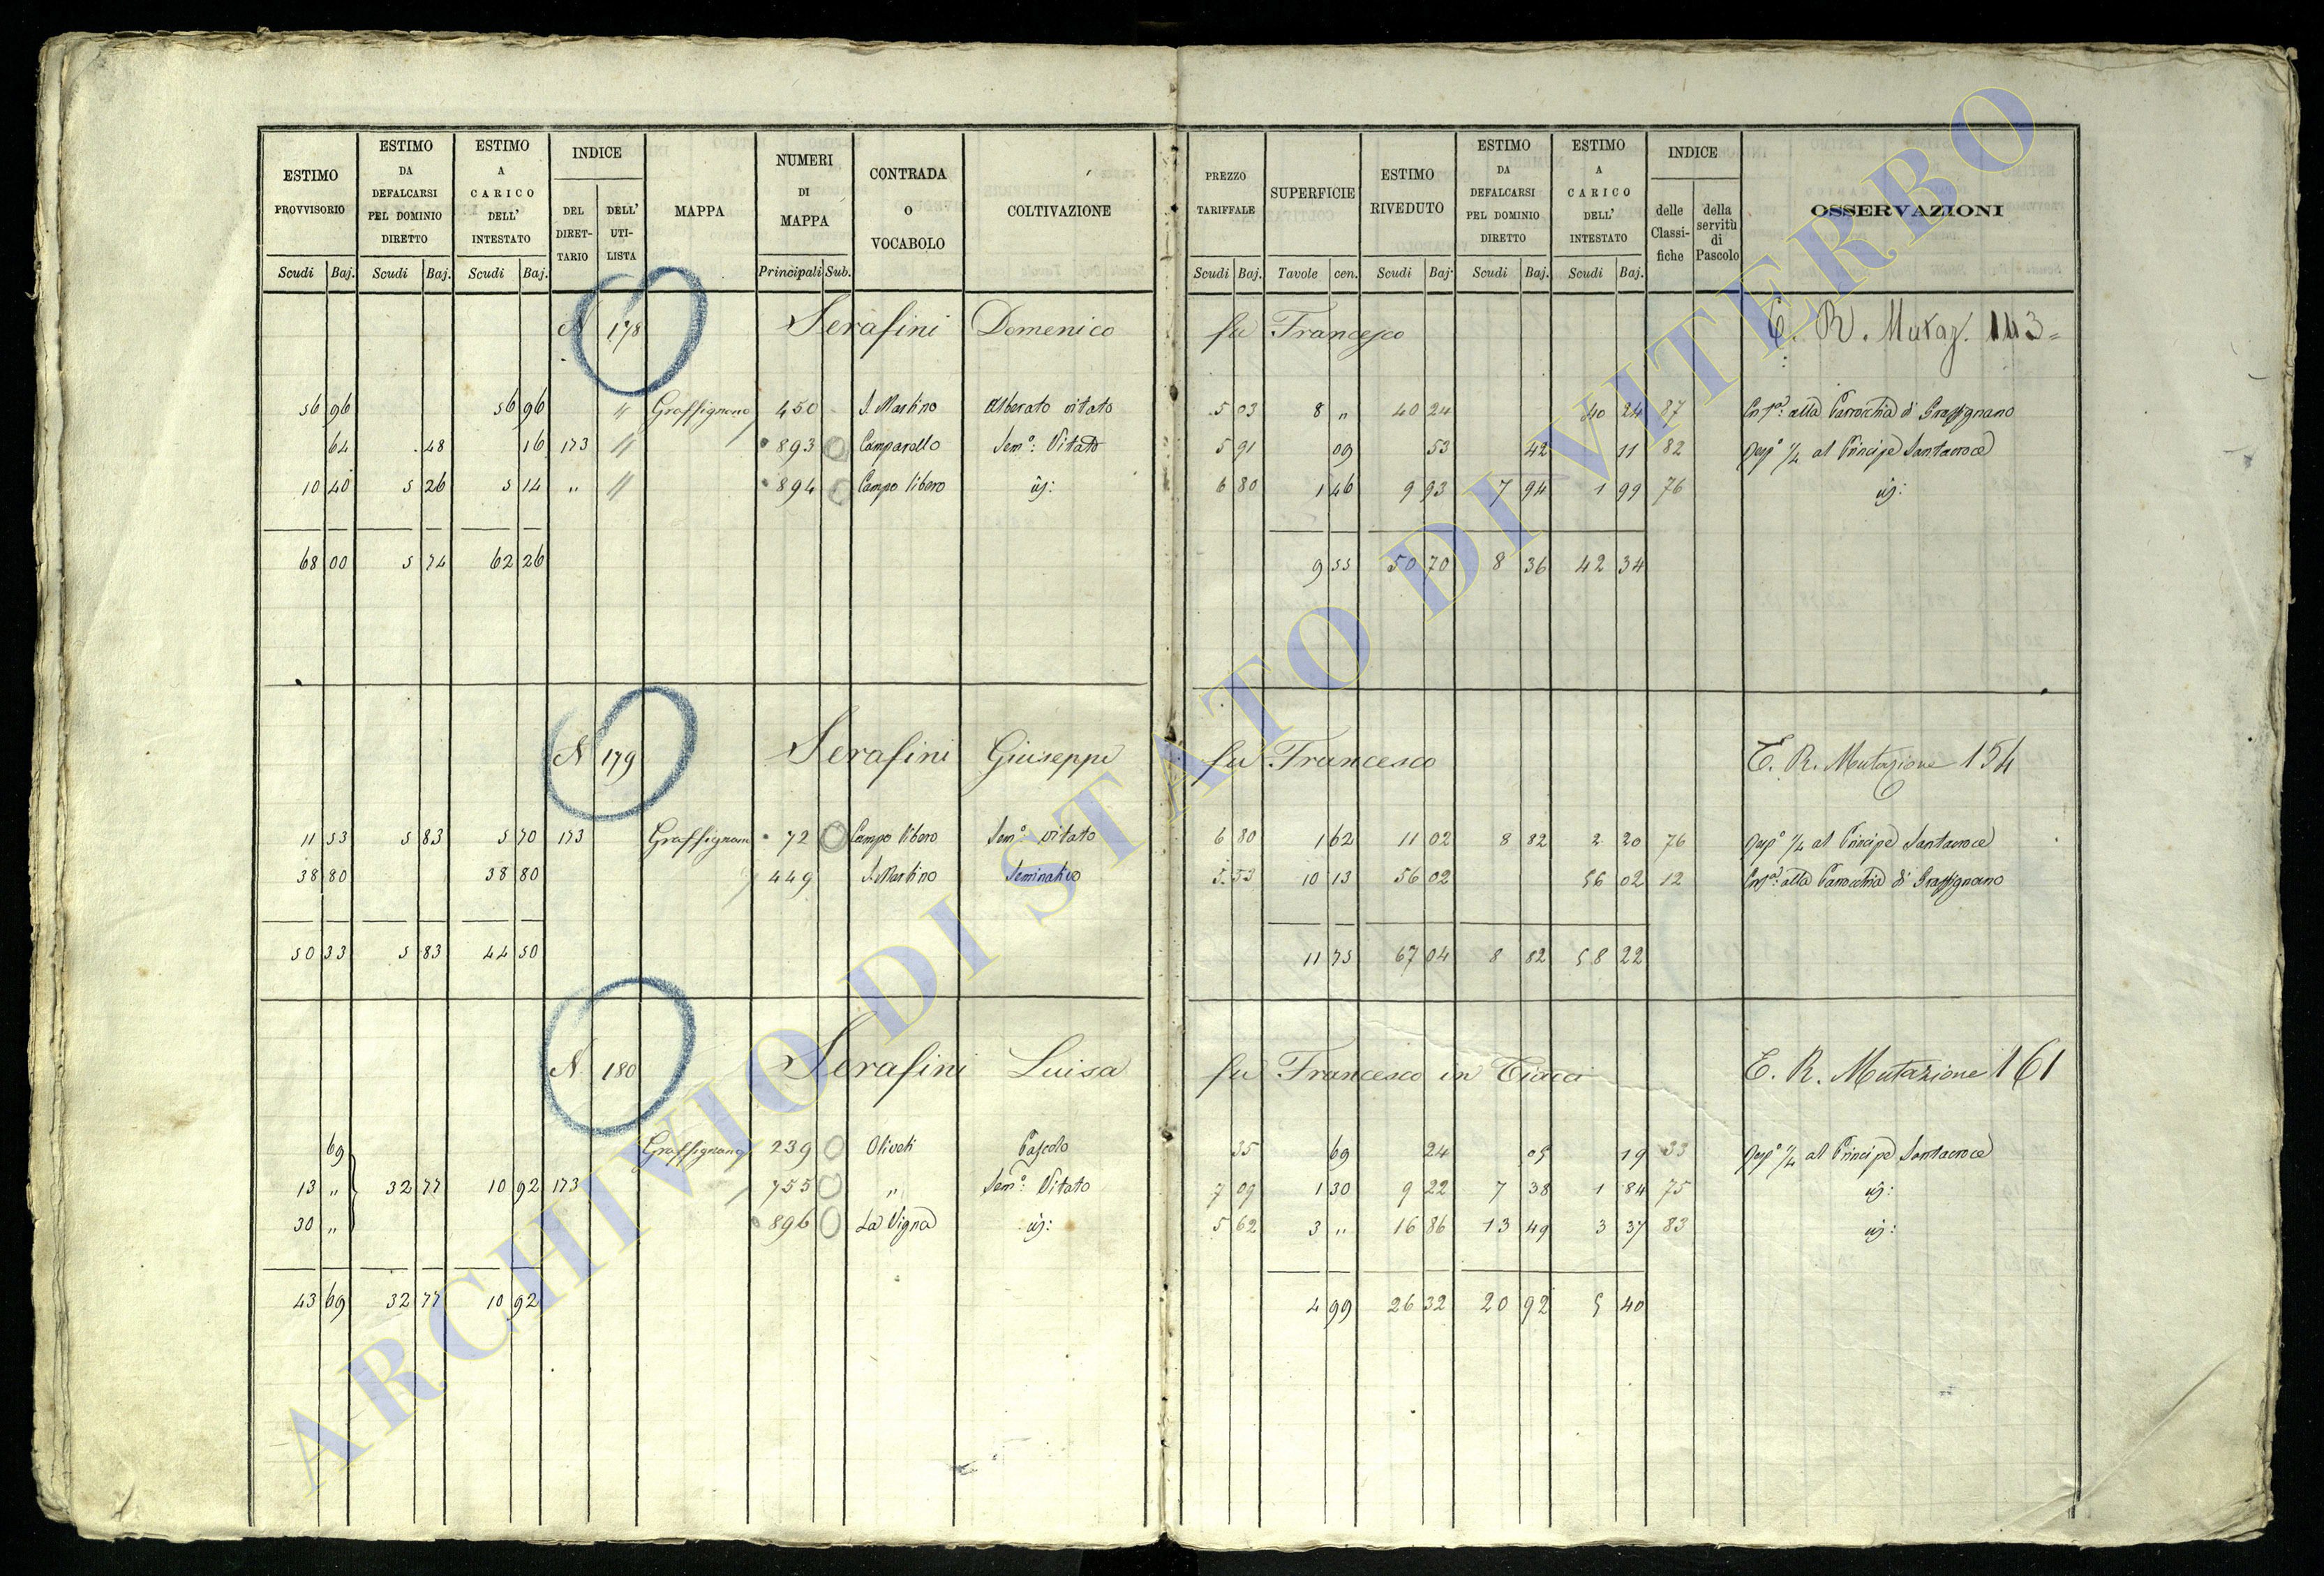 ESTIMO PROVVISORIO
Scudi Baj.
ESTIMO DA DEFALCARSI PEL DOMINIO DIRETTO
Scudi Baj.
ESTIMO A CARICO DELL' INTESTATO
Scudi Baj.
INDICE
DEL DIRET- TARIO
DELL' UTI- LISTA
MAPPA
NUMERI DI MAPPA
Principali Sub.
CONTRADA O VOCABOLO
COLTIVAZIONE
PREZZO TARIFFALE
Scudi Baj.
SUPERFICIE
Tavole cen.
ESTIMO RIVEDUTO
Scudi Baj.
ESTIMO DA DEFALCARSI PEL DOMINIO DIRETTO
Scudi Baj.
ESTIMO A CARICO DELL' INTESTATO
Scudi Baj.
INDICE
delle Classi- fiche
della servitù di Pascolo
OSSERVAZIONI
N 178 Serafini Domenico fu Francesco E. R. Mutaz. 143
56 96 56 96 " Graffignano 450 S. Martino Alberato vitato 5 03 8 " 40 24 40 24 87 alla Parrocchia di Graffignano
64 48 16 173 " 893 Camparello Sem.o: Vitato 5 91 09 53 42 11 82 1/4 al Principe Santacroce
10 40 5 26 5 14 " " 894 Campo libero 6 80 1 46 9 93 7 94 1 99 76
68 00 5 74 62 26 9 55 50 70 8 36 42 34
N 179 Serafini Giuseppe fu Francesco E. R. Mutazione 154
11 53 5 83 5 70 173 Graffignano 72 Campo libero Sem.o: vitato 6 80 1 62 11 02 8 82 2 20 76 1/4 al Principe Santacroce
38 80 38 80 449 S. Martino Seminativo 5 53 10 13 56 02 56 02 12 alla Parrocchia di Graffignano
50 33 5 83 44 50 11 75 67 04 8 82 58 22
N 180 Serafini Luisa fu Francesco in E. R. Mutazione 161
69 Graffignano 239 Oliveti Pascolo 35 69 24 05 19 33 1/4 al Principe Santacroce
13 " 32 77 10 92 173 755 " Sem.o: Vitato 7 09 1 30 9 22 7 38 1 84 75
30 " 896 La Vigna 5 62 3 " 16 86 13 49 3 37 83
43 69 32 77 10 92 4 99 26 32 20 92 5 40
ARCHIVIO DI STATO DI VITERBO